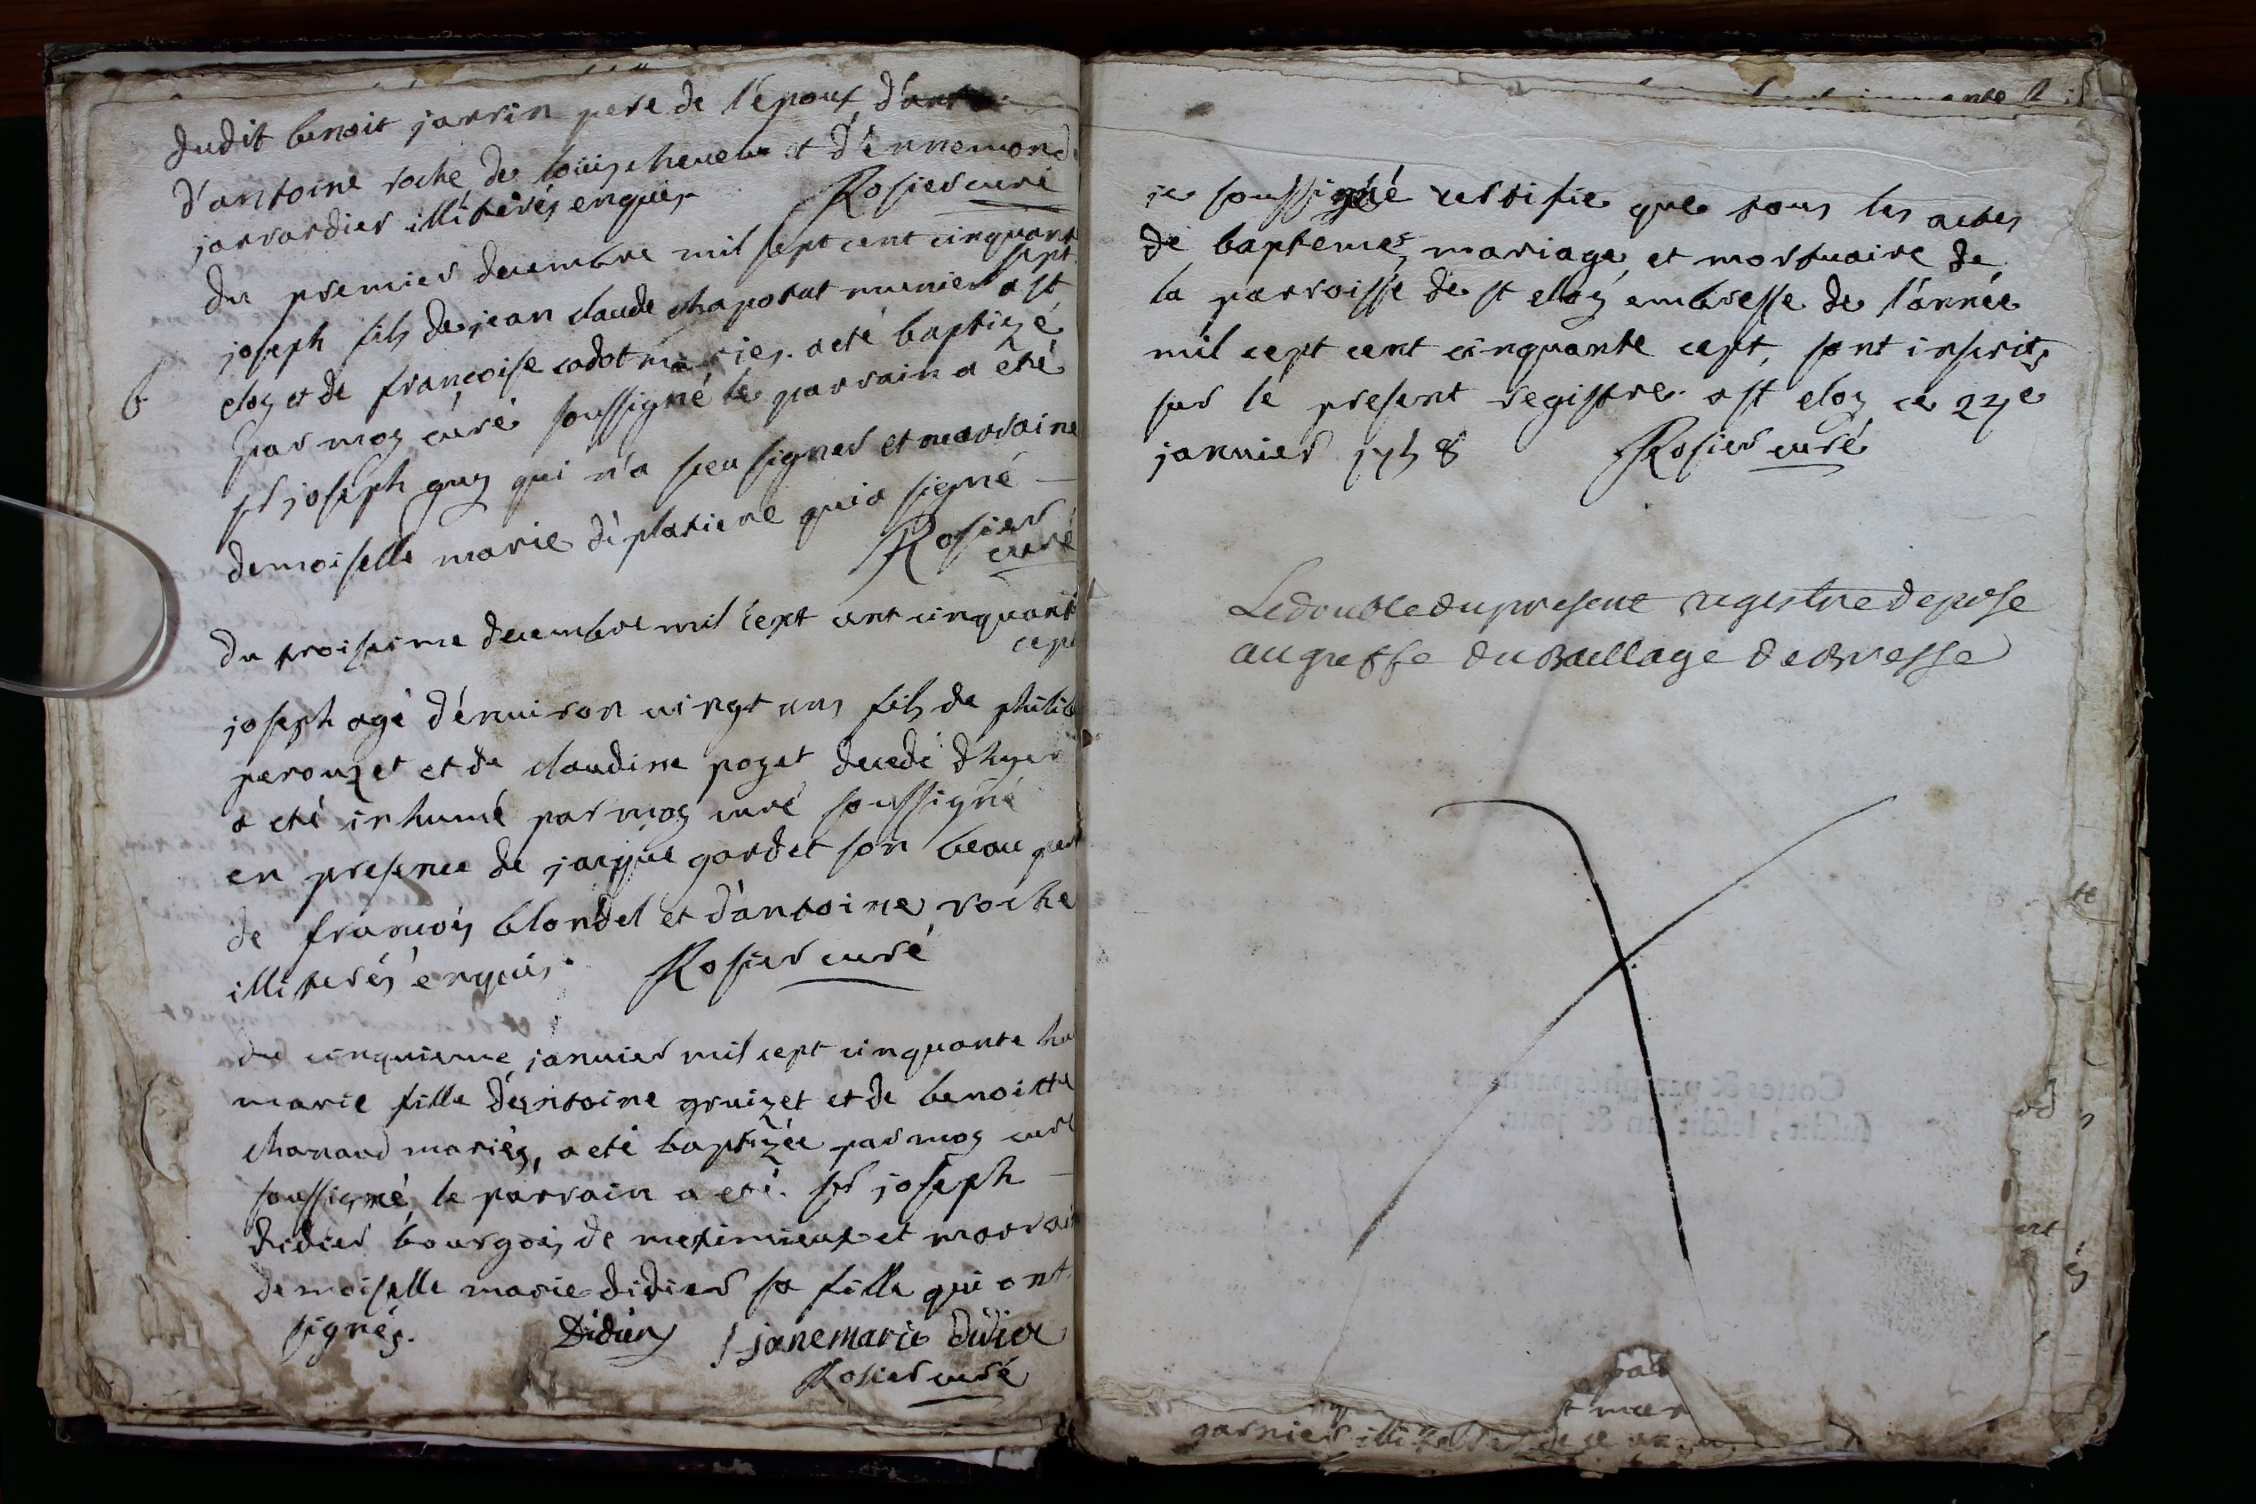 dudit benoit jarrin pere de l'époux
d'antoine roche, de louis et d'ennemond
jarrardier illiterés enquis Rosier curé
du premier decembre mil sept cent cinquante
sept
joseph fils de jean claude chaposut munier a st
eloy et de françoise cadot mariés. a eté baptizé
6.
par moy curé soussigné le parrain a eté
sr joseph guy qui n'a sceu signer et marraine
demoiselle marie déplatiere qui a signé
Rosier
curé
du troisieme decembre mil cept cent cinquante
cept
joseph agé d'environ vingt ans fils de philib
perouzet et de claudine pozet decedé d'hyer
a eté inhumé par moy curé soussigné
en presence de jacque gardet son beau pere
de françois blondel et d'antoine roche
illiterés enquis. Rosier curé
du cinquieme janvier mil cept cinquante hu
marie fille d'entoine gruizet et de benoitte
chanaud mariés, a eté baptizée par moy curé
soussigné, le parrain a eté. sr joseph
didier bourgois de meximieux et marrain
demoiselle marie didier sa fille qui ont
signés. Didier janemarie didier
Rosier curé
je soussigné certifie que tous les actes
de baptemes, mariage, et mortuaire de
la parroisse de st eloy embresse de l'année
mil cept cent cinquante cept, sont inscrits
sur le present registre. a st eloy ce 27e
janvier 1758 Rosier curé
Le double du present registre deposé
au greffe du Baillage de Bresse
garnier